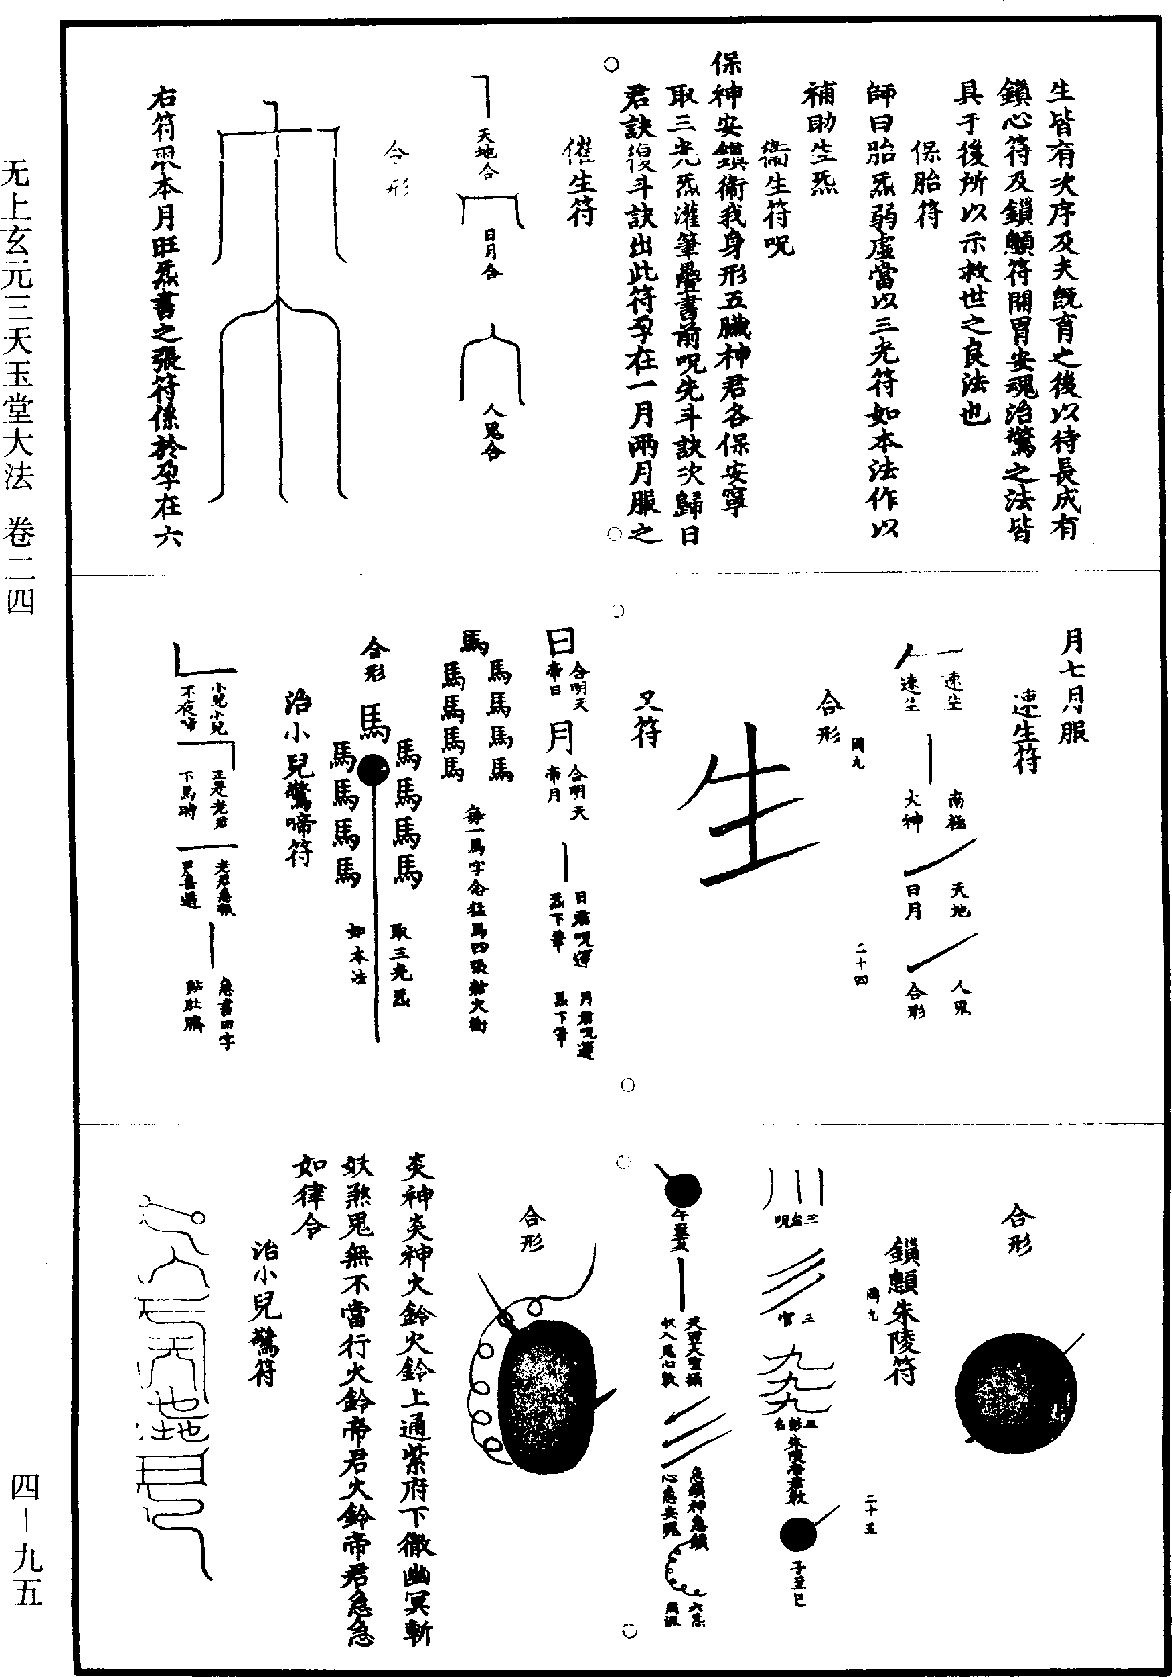 生皆有次序及夫旣育之後以待長成有
鎖心符及鎖顖符開胃安魂治驚之法皆
具于後所以示救世之良法也
保胎符
師曰胎炁弱虛當以三光符如本法作以
補助生炁
衞生符呪
保神安鎮衞我身形五臟神君各保安寧
取三光炁灌筆疊書前呪先斗訣次歸日
君訣復斗訣出此符孕在一月兩月服之
催生符
天地合
日月合
人鬼合
合形
右符取本月旺炁書之張符係於孕在六
月七月服
速生符
速生
速生
南極
大神
天地
日月
人鬼
合形
合形
岡九
二十四
又符
日
合明天
帝日
月
合明天
帝月
日君呪運
炁下筆
月君呪運
炁下筆
馬
馬馬馬馬
馬馬馬馬
每一馬字念猛馬四張
合形
馬
馬馬馬馬
馬馬馬馬
取三光炁
如本法
治小兒驚啼符
小兒小兒
不夜啼
正是老君
下馬時
合形
鎖顖朱陵符
岡九
二十五
三台呪
三官
九九九
子丑巳
合形
炎神炎神火鈴火鈴上通紫府下徹幽冥斬
妖煞鬼無不當行火鈴帝君火鈴帝君急急
如律令
治小兒驚符
无上玄元三天玉堂大法 卷二四
四－九五